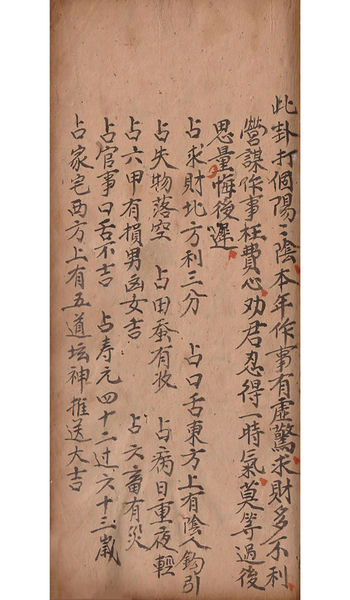 此卦打個陽〻陰本年作事有虛驚求財多不利
營謀作事枉費心劝君忍得一時氣莫等過後
思量悔後遲
占求財北方利三分　占口舌東方上有陰人鈎引
占失物落空　占田蚕有收　占病日重夜輕
占六甲有損男凶女吉　占六畜有災
占官事口舌不吉　占寿元四十二过六十三嵗
占家宅西方上有五道坛神推送大吉